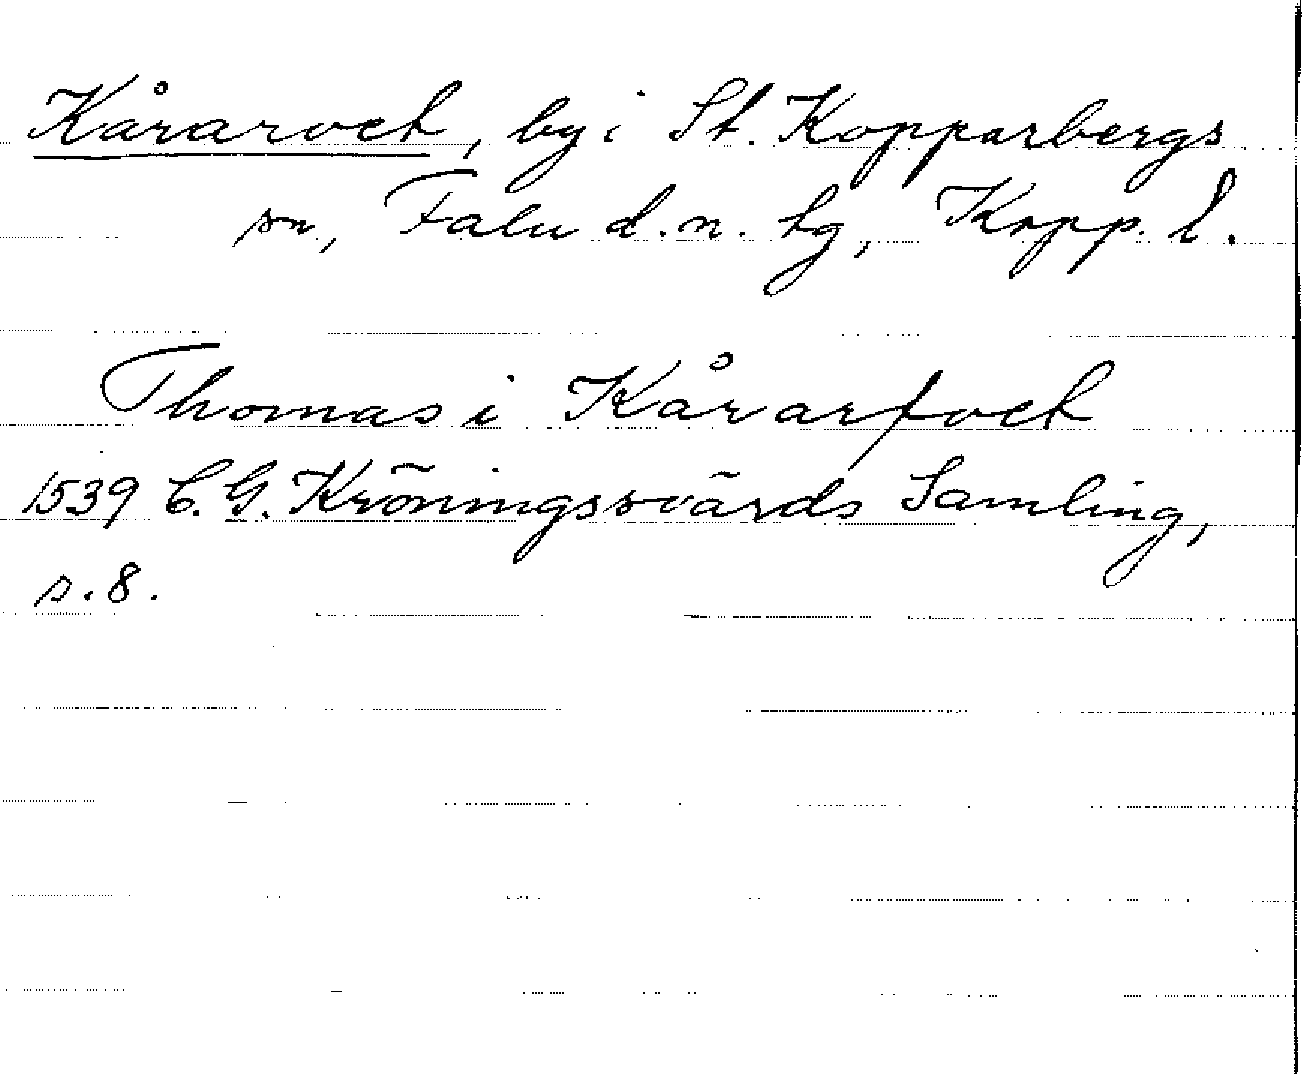 Kårarvet, by i St. Kopparbergs
sn, Falu d.n. tg, Kopp. l.
Thomas i Kårarfvet
1539 C. G. Kröningsvärds Samling,
s. 8.